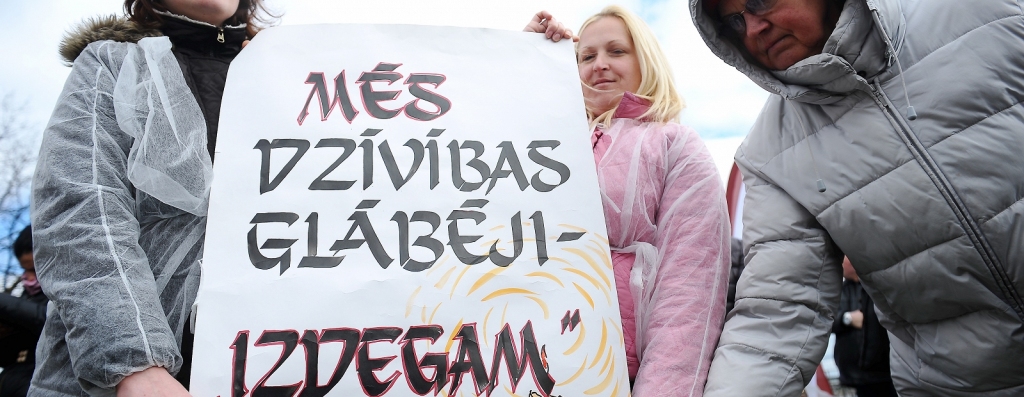 MĒS
DZĪVĪBAS
GLĀBĒJI-
„IZDEGAM"